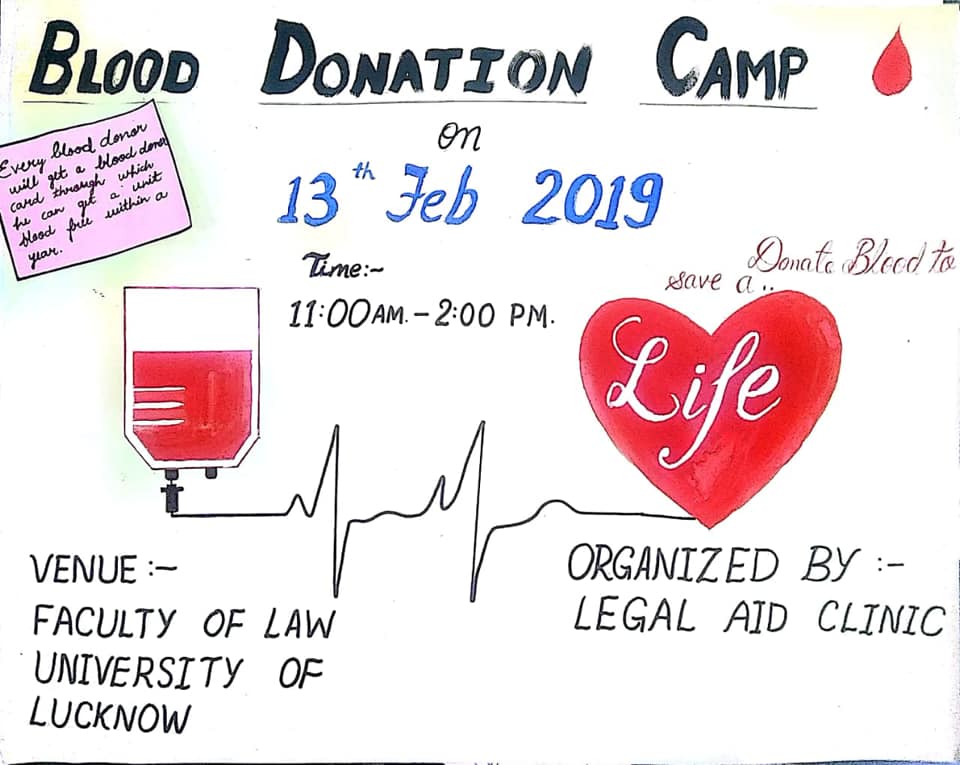 BLOOD DONATION CAMP
on
13th Feb 2019
Every blood donor
will get a blood donor
card through which
he can get a unit
blood free within a
year.
Time:~
11:00 AM. – 2:00 PM.
Donate Blood to
save a..
Life
VENUE :~
FACULTY OF LAW
UNIVERSITY OF
LUCKNOW
ORGANIZED BY :-
LEGAL AID CLINIC